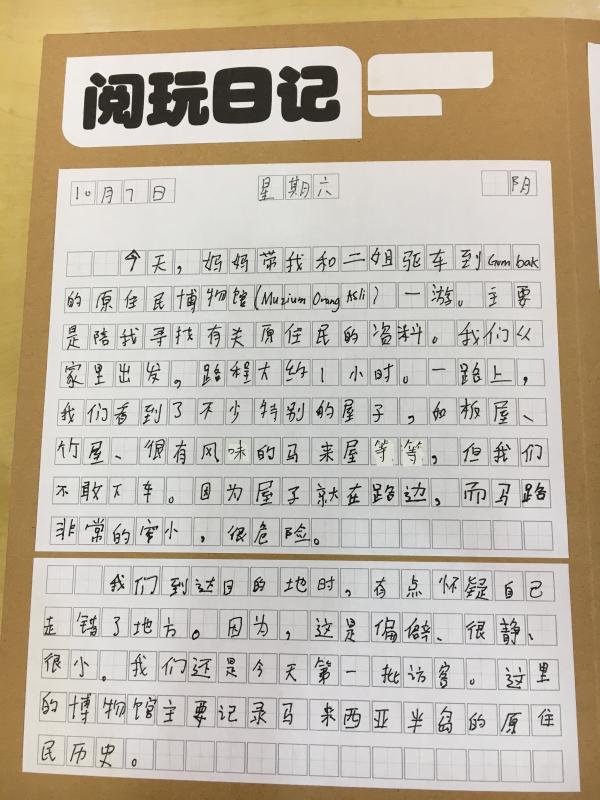 阅玩日记
10月7日 星期六 阴
今天，妈妈带我和二姐驱车到Gombak
的原住民博物馆（Muzium Orang Asli）一游。主要
是陪我寻找有关原住民的资料。我们从
家里出发，路程大约1小时。一路上，
我们看到了不少特别的屋子，如板屋、
竹屋、很有风味的马来屋等等，但我们
不敢下车。因为屋子就在路边，而马路
非常的窄小，很危险。
我们到达目的地时，有点怀疑自己
走错了地方。因为，这是偏僻、很静、
很小。我们还是今天第一批访客。这里
的博物馆主要记录马来西亚半岛的原住
民历史。